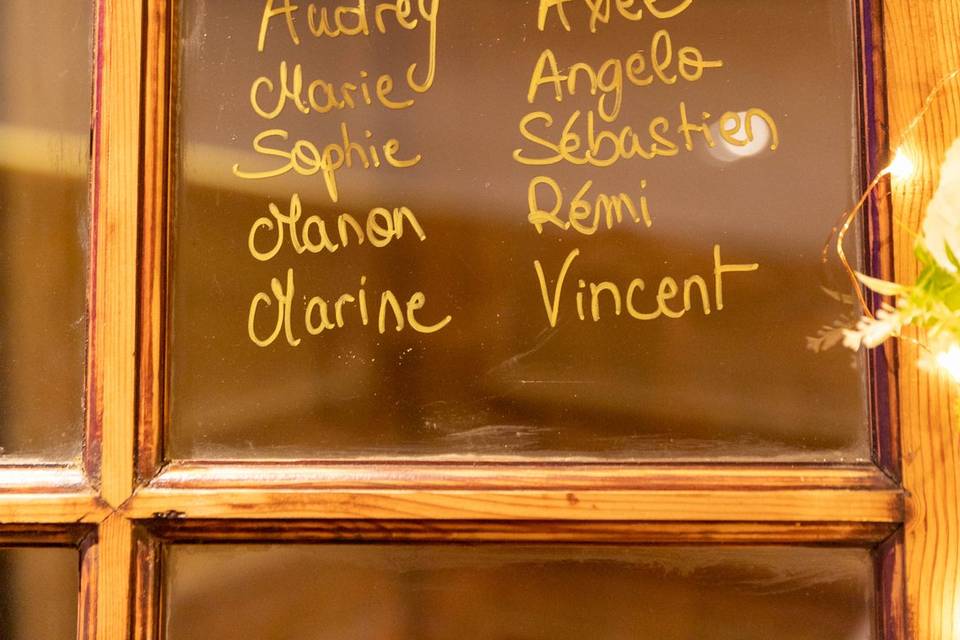 Audrey
Marie
Sophie
Manon
Marine
Axel
Angelo
Sébastien
Rémi
Vincent